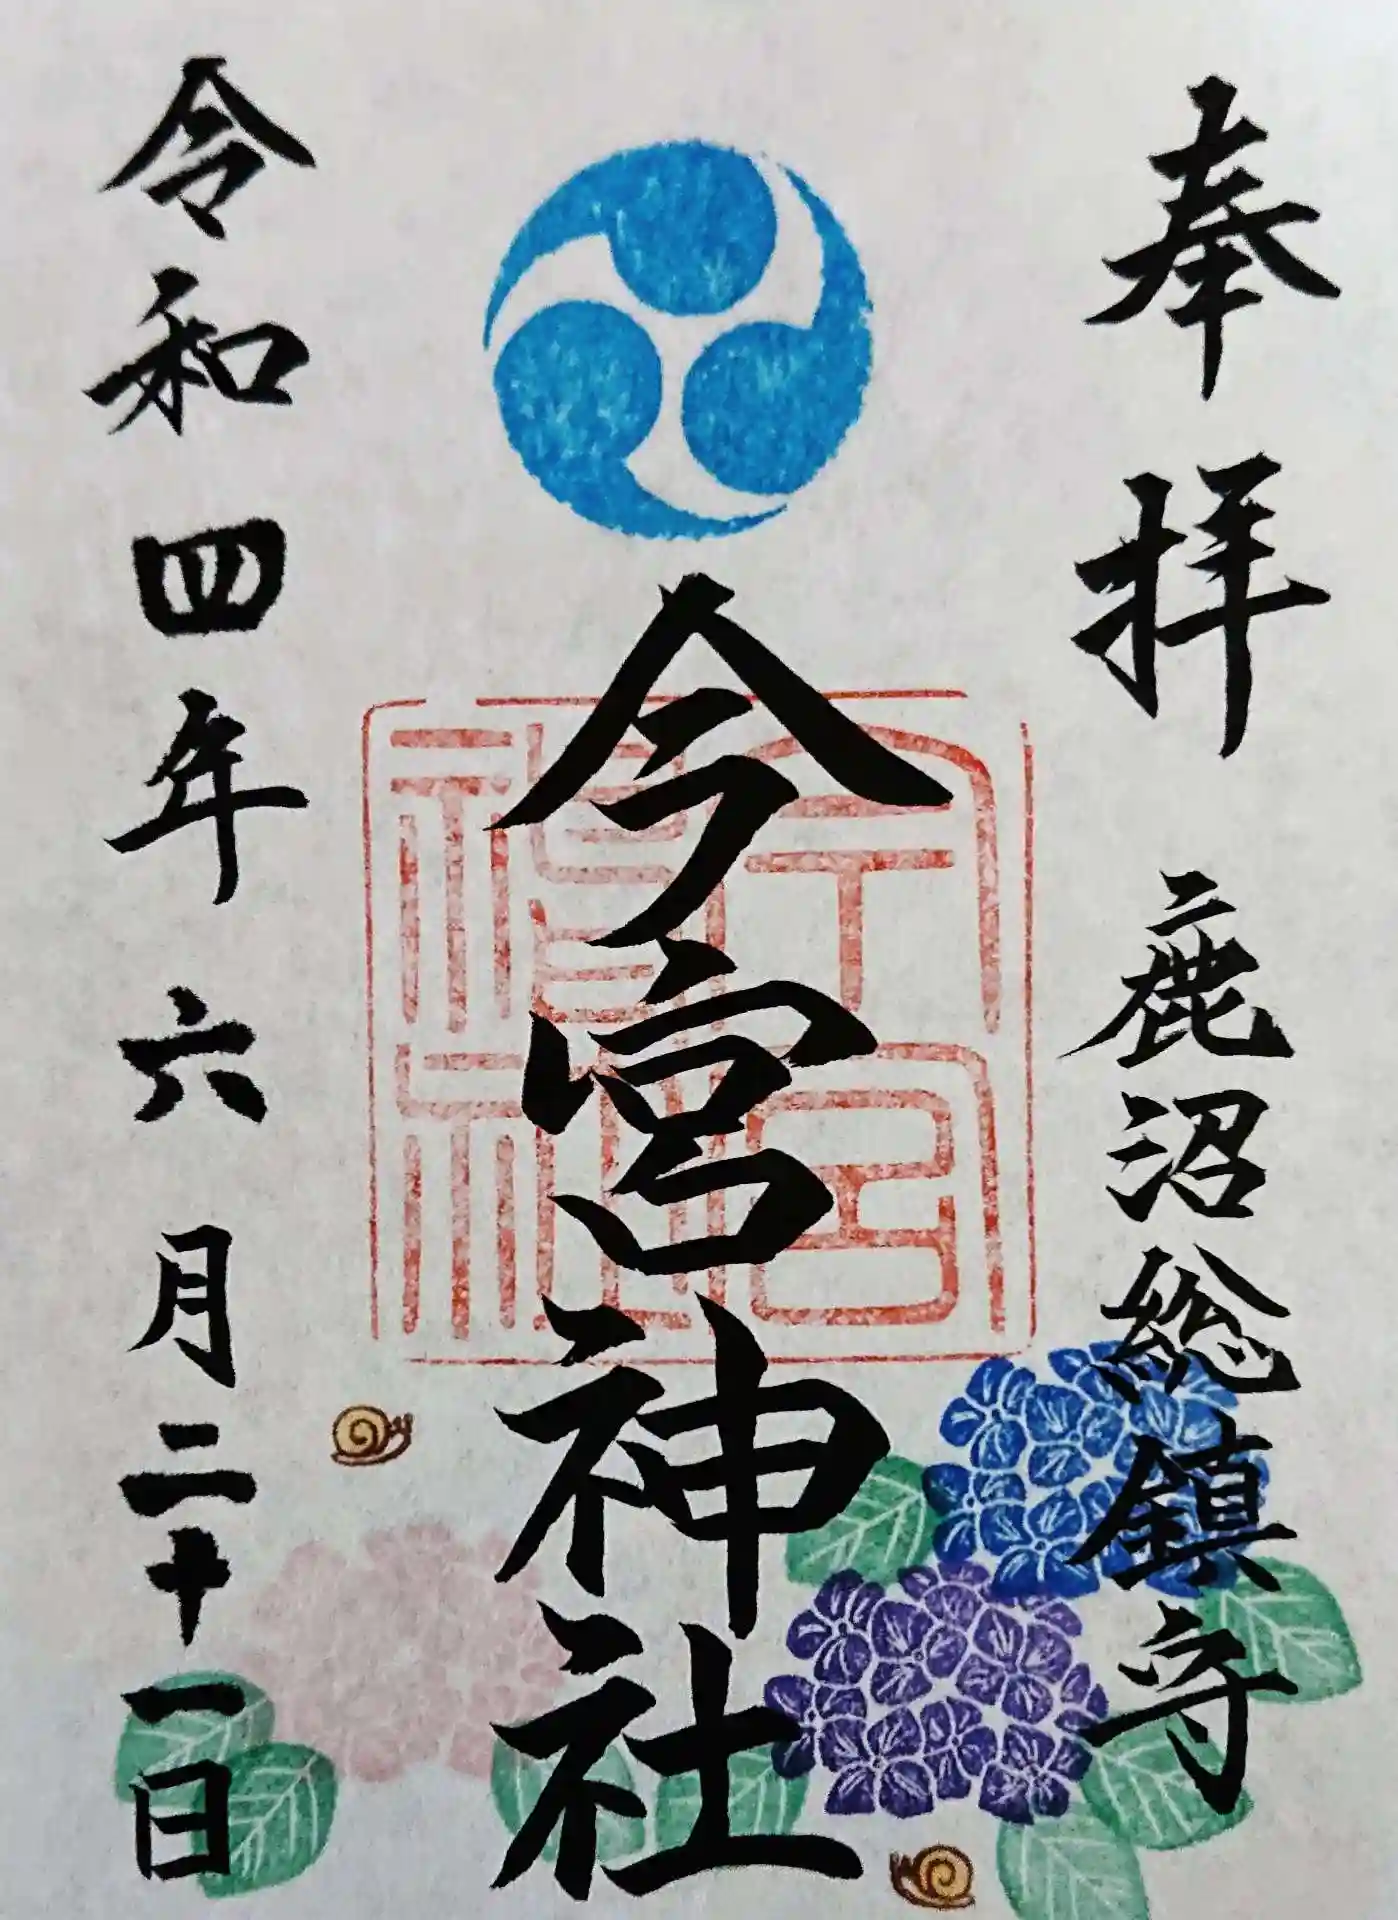 奉拝 鹿沼総鎮守
今宮神社
令和四年六月二十一日